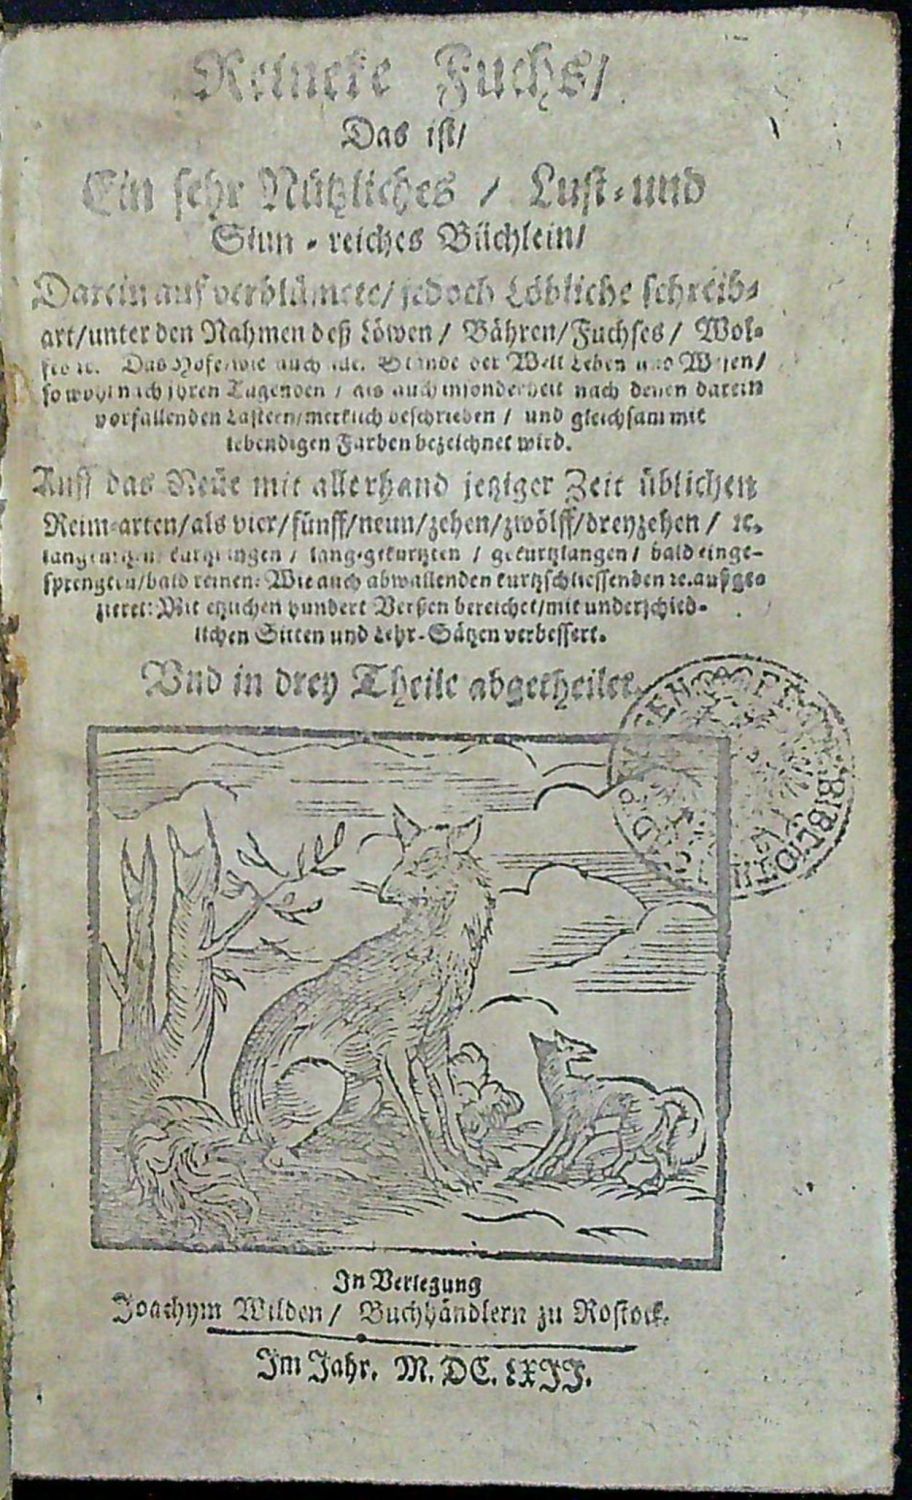 Reineke Fuchs/
Das ist/
Ein sehr Nützliches / Lust-und
Sinn-reiches Büchlein/
Darein auf verblümete/ jedoch Löbliche schreib-
art/unter den Nahmen deß Löwen / Bähren/Fuchses / Wol-
Das Hofe wie auch alle Stände der Welt Leben und Wesen/
so wohl nach ihren Tugenden / als auch insonderheit nach denen darein
vorfallenden Lastern/mercklich beschrieben / und gleichsam mit
lebendigen Farben bezeichnet wird.
Auff das Neüe mit allerhand jetziger Zeit üblichen
Reim-arten/als vier/fünff/neun/zehen/zwölff/dreyzehen / ꝛc.
kurtzlangen / lang-gekürtzten / gekürtzlangen / bald einge-
sprengten/bald reinen: Wie auch abwallenden kurtzschliessenden ꝛc. außge-
zieret: Mit etzlichen hundert Verßen bereichet/mit underschied-
lichen Sitten und Lehr-Sätzen verbessert.
Und in drey Theile abgetheilet.
BIBLIO
In Verlegung
Joachym Wilden/ Buchhändlern zu Rostock.
Im Jahr. M. DC. LXII.